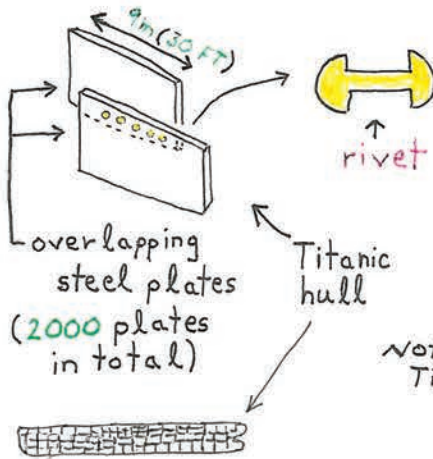 9m (30 FT)
rivet
overlapping
steel plates
(2000 plates
in total)
Titanic
hull